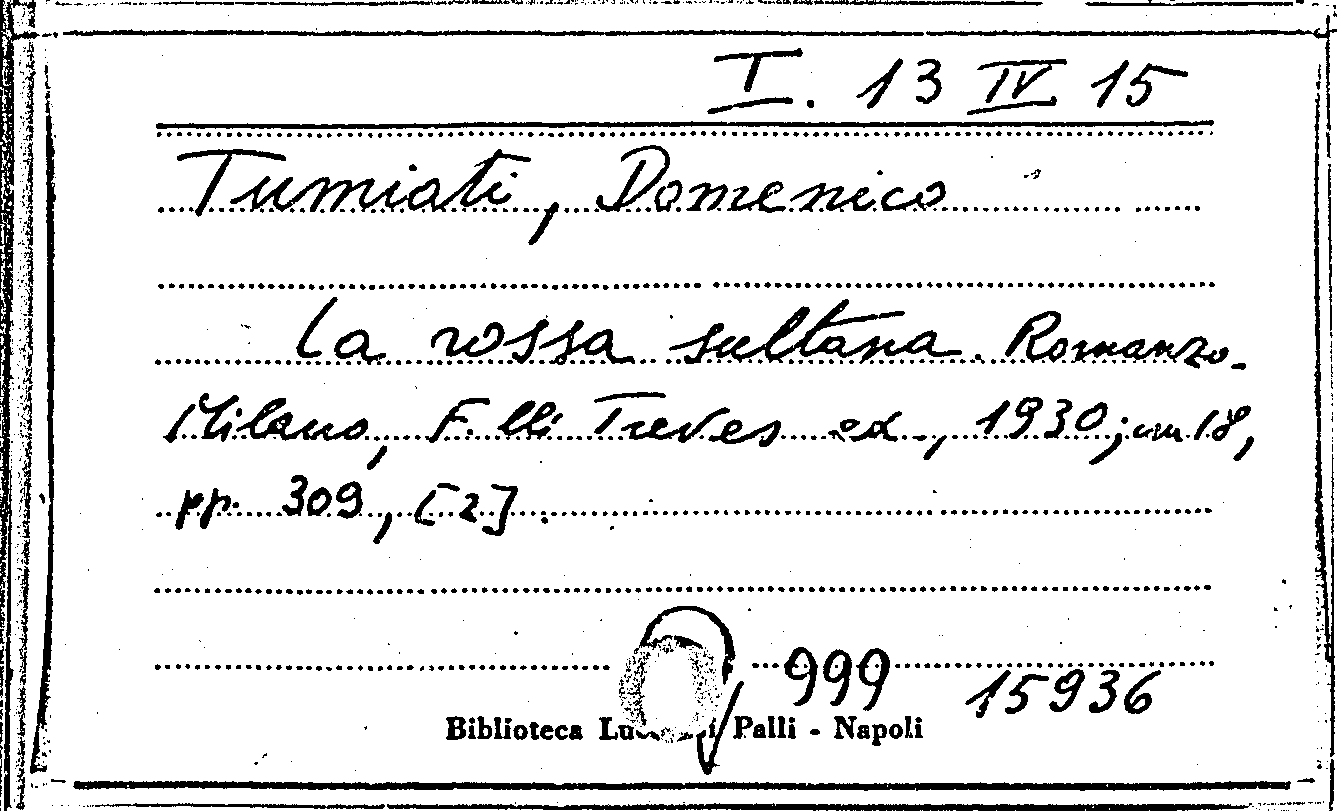 I. 13 IV 15
Tumiati, Domenico
La rossa sultana. Romanzo.
Milano, F.lli Treves ed., 1930; in 18,
pp. 309, [2].
999 15936
Biblioteca Palli - Napoli